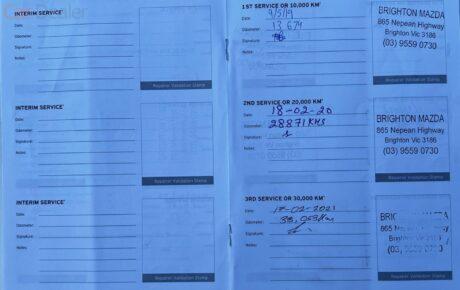 INTERIM SERVICE*
Date:
Odometer:
Signature:
Notes:
Repairer Validation Stamp
INTERIM SERVICE*
Date:
Odometer:
Signature:
Notes:
Repairer Validation Stamp
INTERIM SERVICE*
Date:
Odometer:
Signature:
Notes:
Repairer Validation Stamp
1ST SERVICE OR 10,000 KM*
Date: 9/5/19
Odometer: 13 674
Signature:
Notes:
BRIGHTON MAZDA
865 Nepean Highway
Brighton Vic 3186
(03) 9559 0730
Repairer Validation Stamp
2ND SERVICE OR 20,000 KM*
Date: 18-02-20
Odometer: 28871 KMS
Signature:
Notes:
BRIGHTON MAZDA
865 Nepean Highway
Brighton Vic 3186
(03) 9559 0730
Repairer Validation Stamp
3RD SERVICE OR 30,000 KM*
Date: 17-02-2021
Odometer:
Signature:
Notes:
MAZDA
865 Highway
3186
(03) 0730
Repairer Validation Stamp